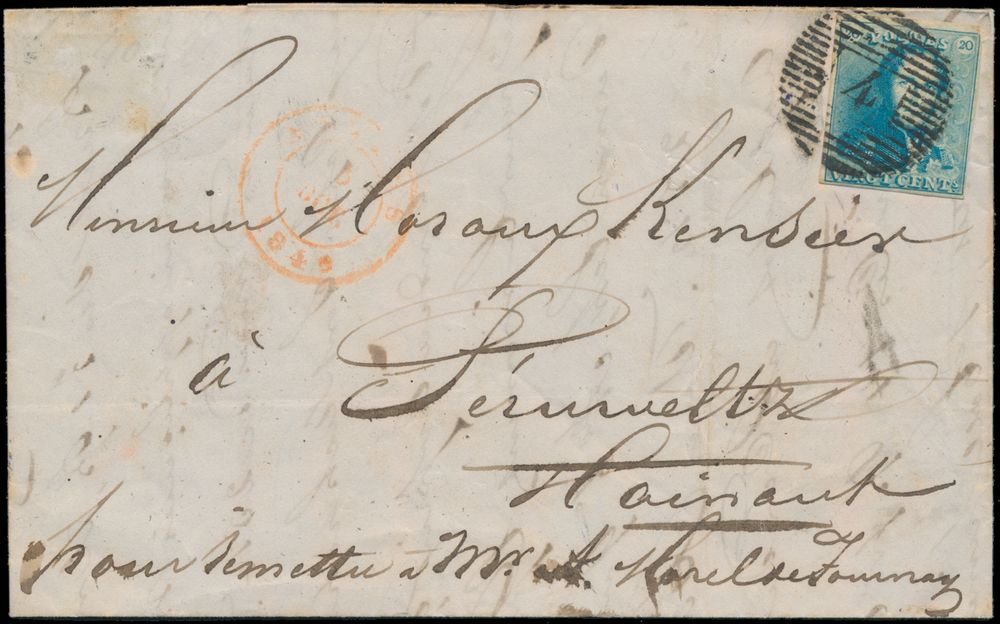 POSTES 20
4
VINGT CENTS
Monsieur Moraux Rensier
à Péruweltz
Hainaut
pour remettre à Mr. A. Morel de Tournay